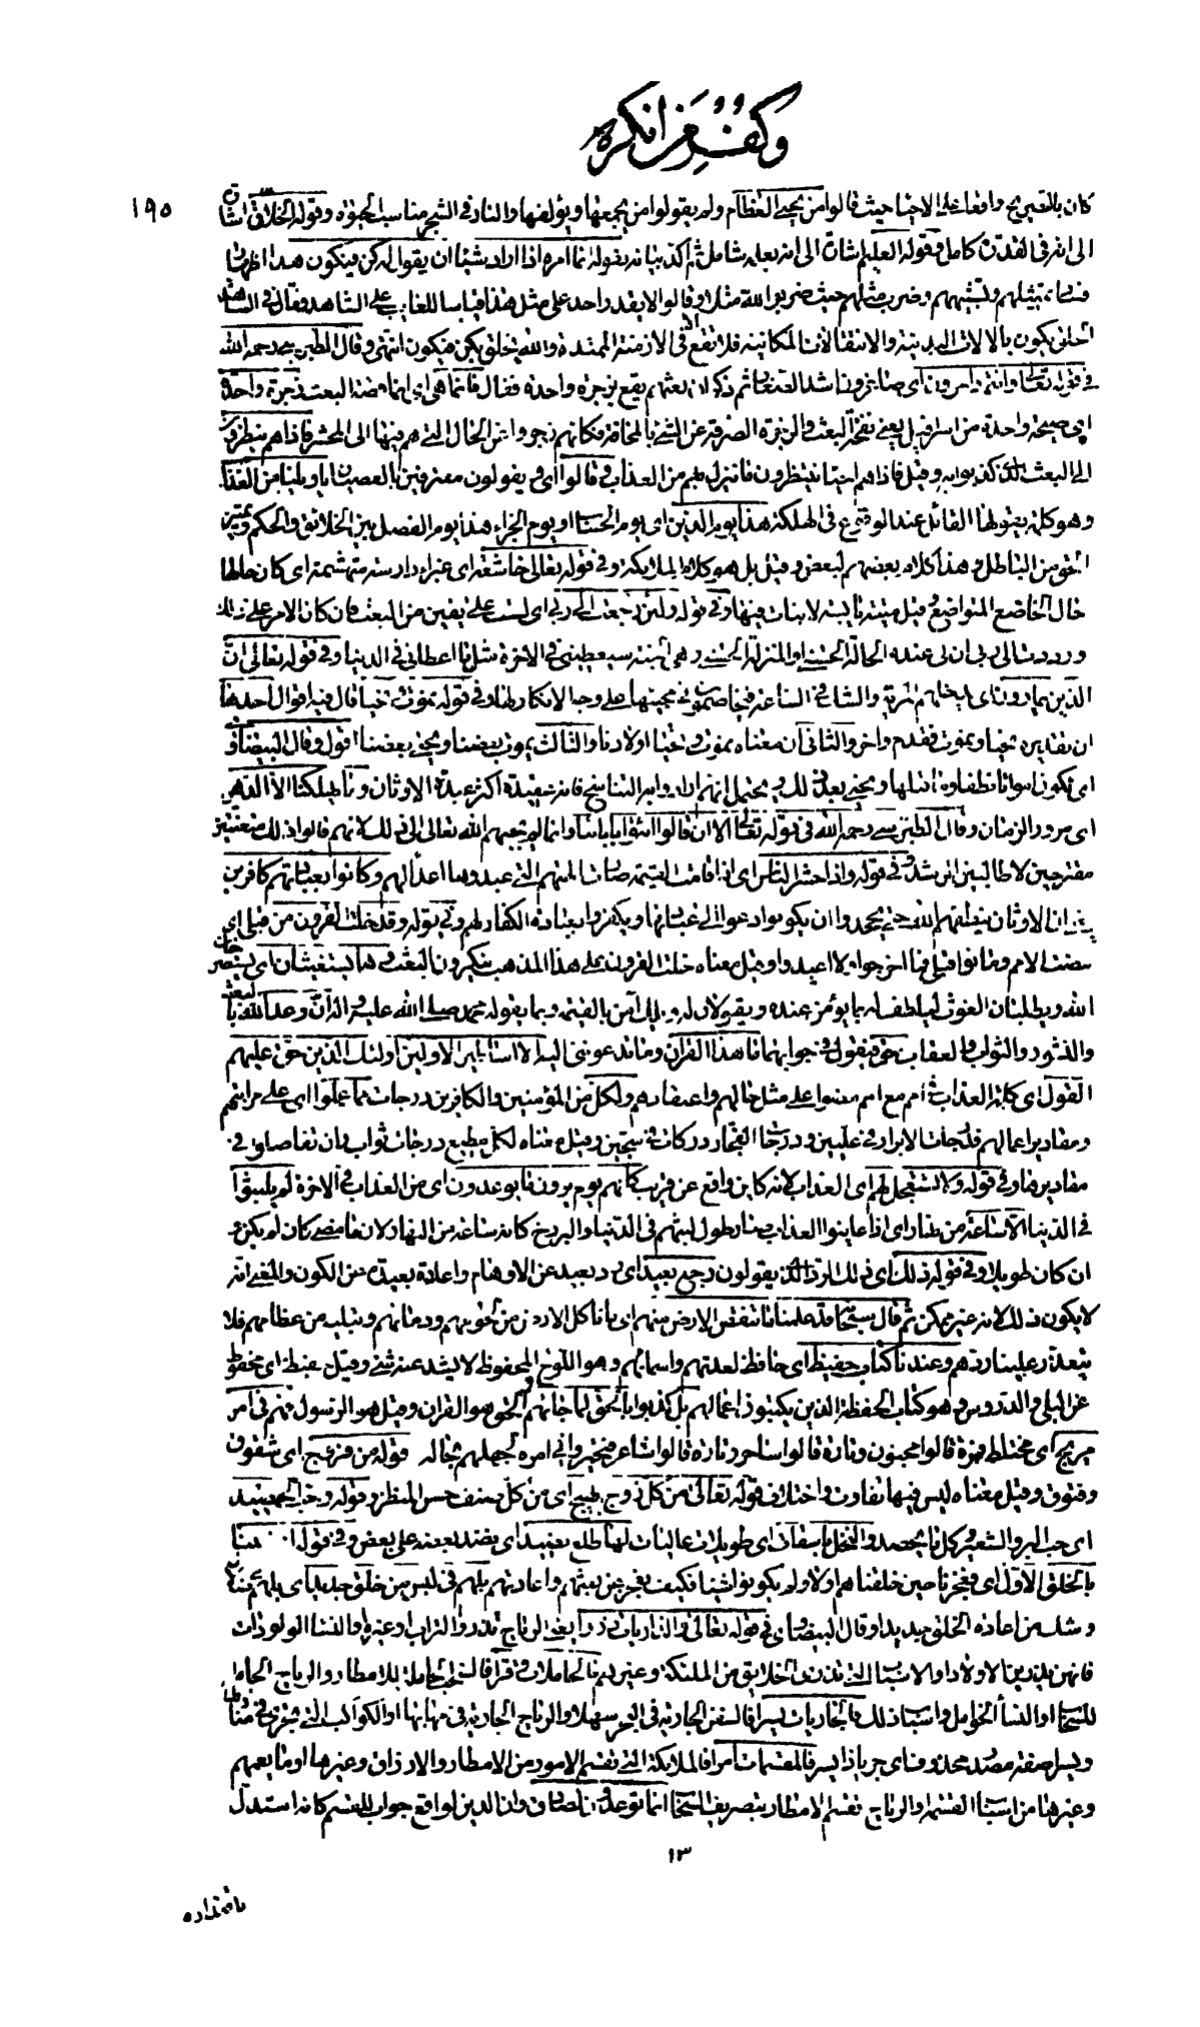 وكفر من انكره
١٩٥
كان بالتفريح واقعا على الاحيا حيث قالوا من يحيى العظام ولم يقولوا من يجمعها ويؤلفها والنار في الشجر مناسب الحيوة وقوله الخلاق اشارة
الى انه في القدرة كامل وقوله العليم اشارة الى انه بعلمه شامل ثم اكد بيانه بقوله انما امره اذا اراد شيئا ان يقول له كن فيكون هذا اظهار
فساد تمثيلهم وتشبيههم وضرب مثلهم حيث ضربوا لله مثلا وقالوا لا يقدر احد على مثل هذا قياسا للغايب على الشاهد فقال في الشاهد
الخلق يكون بالالات البدنية والانتقالات المكانية فلا تقع الا في الازمنة الممتدة والله يخلق بكن فيكون انتهى وقال الطبرسي رحمه الله
في قوله تعالى وانتم داخرون اى صاغرون اشد الصغار ثم ذكر ان بعثهم يقع بزجرة واحدة فقال فانما هي اى انما قصة البعث زجرة واحدة
اى صيحة واحدة من اسرافيل يعنى نفخة البعث والزجرة الصرفة عن الشيء بالمخافة فكانهم زجروا عن الحال التي هم فيها الى المحشر فاذا هم ينظرون
الى البعث الذى كذبوا به وقيل فاذا هم احياء ينتظرون ما ينزل بهم من العذاب وقالوا اى ويقولون معترفين بالعصيان يا ويلنا من العذاب
وهو كلمة يقولها القائل عند الوقوع في الهلكة هذا يوم الدين اى يوم الحساب او يوم الجزاء هذا يوم الفصل بين الخلائق والحكم وتمييز
الحق من الباطل وهذا كلام بعضهم لبعض وقيل بل هو كلام الملائكة وفي قوله تعالى خاشعة اى غبراء دارسة متهشمة اى كان حالها
حال الخاضع المتواضع وقيل ميتة يابسة لا نبات فيها وفي قوله ولئن رجعت الى ربى اى لست على يقين من البعث فان كان الامر على ذلك
ورددت الى ربى ان لى عنده الحالة الحسنى او المنزلة الحسنى وهى الجنة سيعطينى في الاخرة مثل ما اعطانى في الدنيا وفي قوله تعالى ان
الذين يمارون اى يدخلهم المرية والشك في الساعة فيخاصمون في مجيئها على وجه الانكار لها وفي قوله نموت ونحيا قال فيه اقوال احدها
ان تقديره نحيا ونموت فقدم واخر والثانى ان معناه نموت ونحيا اولادنا والثالث يموت بعضنا ويحيى بعضنا اقول وقال البيضاوى
اى نكون امواتا نطفا وما قبلها ونحيى بعد ذلك ويحتمل انهم ارادوا به التناسخ فانه عقيدة اكثر عبدة الاوثان وما يهلكنا الا الدهر
اى مرور الزمان وقال الطبرسى رحمه الله في قوله تعالى الا ان قالوا ائتوا بابائنا وانما لم يجبهم الله تعالى الى ذلك لانهم قالوا ذلك متعنتين
مقترحين لا طالبين الرشد وفي قوله واذا حشر الناس اى اذا قامت القيمة صارت الهتهم التي عبدوها اعداء لهم وكانوا بعبادتهم كافرين
يعنى ان الاوثان ينطقهم الله حتى يجحدوا ان يكونوا دعوا الى عبادتها ويكفروا بعبادة الكفار لهم وفي قوله وقد خلت القرون من قبلى اى
مضت الامم وماتوا قبلى فما اخرجوا ولا اعيدوا وقيل معناه خلت القرون على هذا المذهب ينكرون البعث وهما يستغيثان اى يستصرخان
الله ويطلبان الغوث ليلطف له بما يؤمن عنده ويقولان له ويلك آمن بالقيمة وبما يقوله محمد صلى الله عليه واله ان وعد الله بالبعث
والنشور والثواب والعقاب حق فيقول في جوابهما ما هذا القرآن وما تدعوننى اليه الا اساطير الاولين اولئك الذين حق عليهم
القول اى كلمة العذاب في امم مع امم مضوا على مثل حالهم واعتقادهم ولكل من المؤمنين والكافرين درجات مما عملوا اى على مراتبهم
ومقادير اعمالهم فدرجات الابرار في عليين ودرجات الفجار دركات في سجين وقيل معناه لكل مطيع درجات ثواب وان تفاضلوا في
مقاديرها وفي قوله ولا تستعجل لهم اى العذاب لانه كاين واقع عن قريب كانهم يوم يرون ما يوعدون اى من العذاب في الاخرة لم يلبثوا
في الدنيا الا ساعة من نهار اى اذا عاينوا العذاب صار طول لبثهم في الدنيا والبرزخ كانه ساعة من النهار لان ما مضى كان لم يكن و
ان كان طويلا وفي قوله ذلك اى ذلك الرد الذى يقولون رجع بعيد اى رد بعيد عن الاوهام واعادة بعيدة عن الكون والمعنى انه
لا يكون ذلك لانه غير ممكن ثم قال سبحانه قد علمنا ما تنقص الارض منهم اى ما تاكل الارض من لحومهم ودمائهم وتبليه من عظامهم فلا
يتعذر علينا ردهم وعندنا كتاب حفيظ اى حافظ لعدتهم واسمائهم وهو اللوح المحفوظ لا يشذ عنه شيء وقيل حفيظ اى محفوظ
عن البلى والدروس وهو كتاب الحفظة الذين يكتبون اعمالهم بل كذبوا بالحق لما جاءهم والحق هو القرآن وقيل هو الرسول فهم في امر
مريج اى مختلط فمرة قالوا مجنون وتارة قالوا ساحر وتارة قالوا شاعر فتحيروا في امرهم لجهلهم بحاله قوله من فروج اى شقوق
وفتوق وقيل معناه ليس فيها تفاوت واختلاف قوله تعالى من كل زوج بهيج اى من كل صنف حسن المنظر وقوله وحب الحصيد
اى حب البر والشعير وكل ما يحصد والنخل باسقات اى طويلات عاليات لها طلع نضيد اى نضد بعضه على بعض وفي قوله افعيينا
بالخلق الاول اى افعجزنا حين خلقناهم اولا ولم يكونوا شيئا فكيف نعجز عن بعثهم واعادتهم بل هم في لبس من خلق جديد اى بل هم في ضلال
وشك من اعادة الخلق جديدا وقال البيضاوى في قوله تعالى والذاريات ذروا يعنى الرياح تذرو التراب وغيره او النساء الولود
فانهن يذرين الاولاد او الاسباب التي تذرى الخلائق من الملئكة وغيرهم فالحاملات وقرا فالسحب الحاملة للامطار او الرياح الحاملة
للسحاب او النساء الحوامل واسباب ذلك فالجاريات يسرا فالسفن الجارية في البحر سهلا او الرياح الجارية في مهابها او الكواكب التي تجرى في منازلها
ويسرا صفة مصدر محذوف اى جريا ذا يسر فالمقسمات امرا فالملائكة التي تقسم الامور من الامطار والارزاق وغيرها او ما يعمهم
وغيرها من اسباب القسمة او الرياح تقسم الامطار بتصريف السحاب انما توعدون لصادق وان الدين لواقع جواب للقسم كانه استدل
١٣
باقتداره